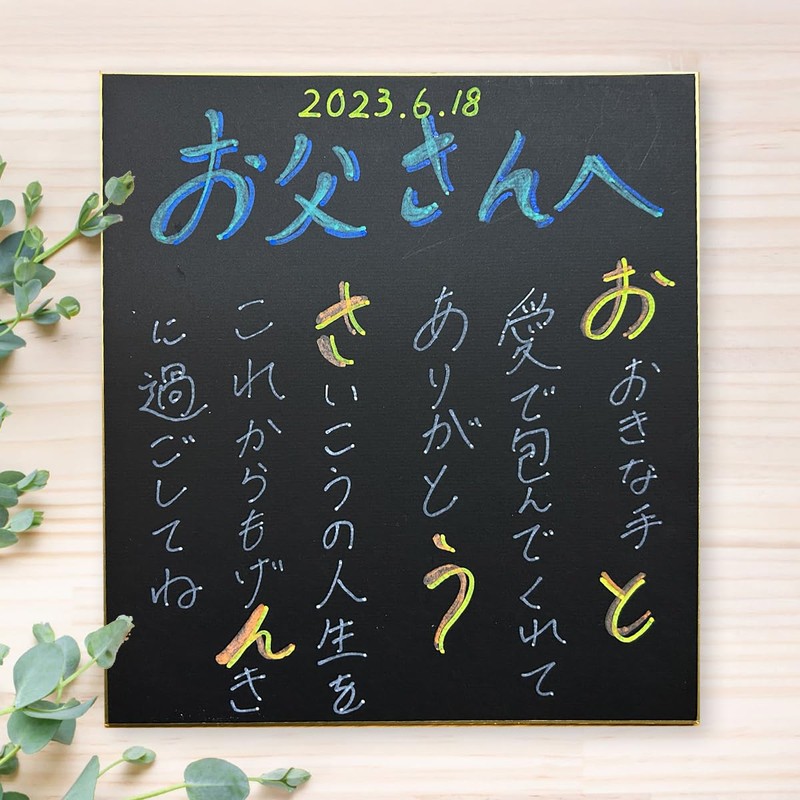 2023.6.18
お父さんへ
おおきな手と
愛で包んでくれて
ありがとう
さいこうの人生を
これからもげんき
に過ごしてね